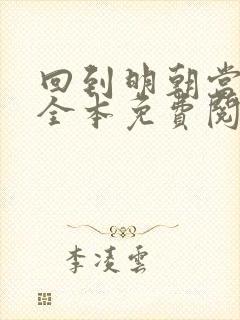 回到明朝当
全本免費閱
李凌雲